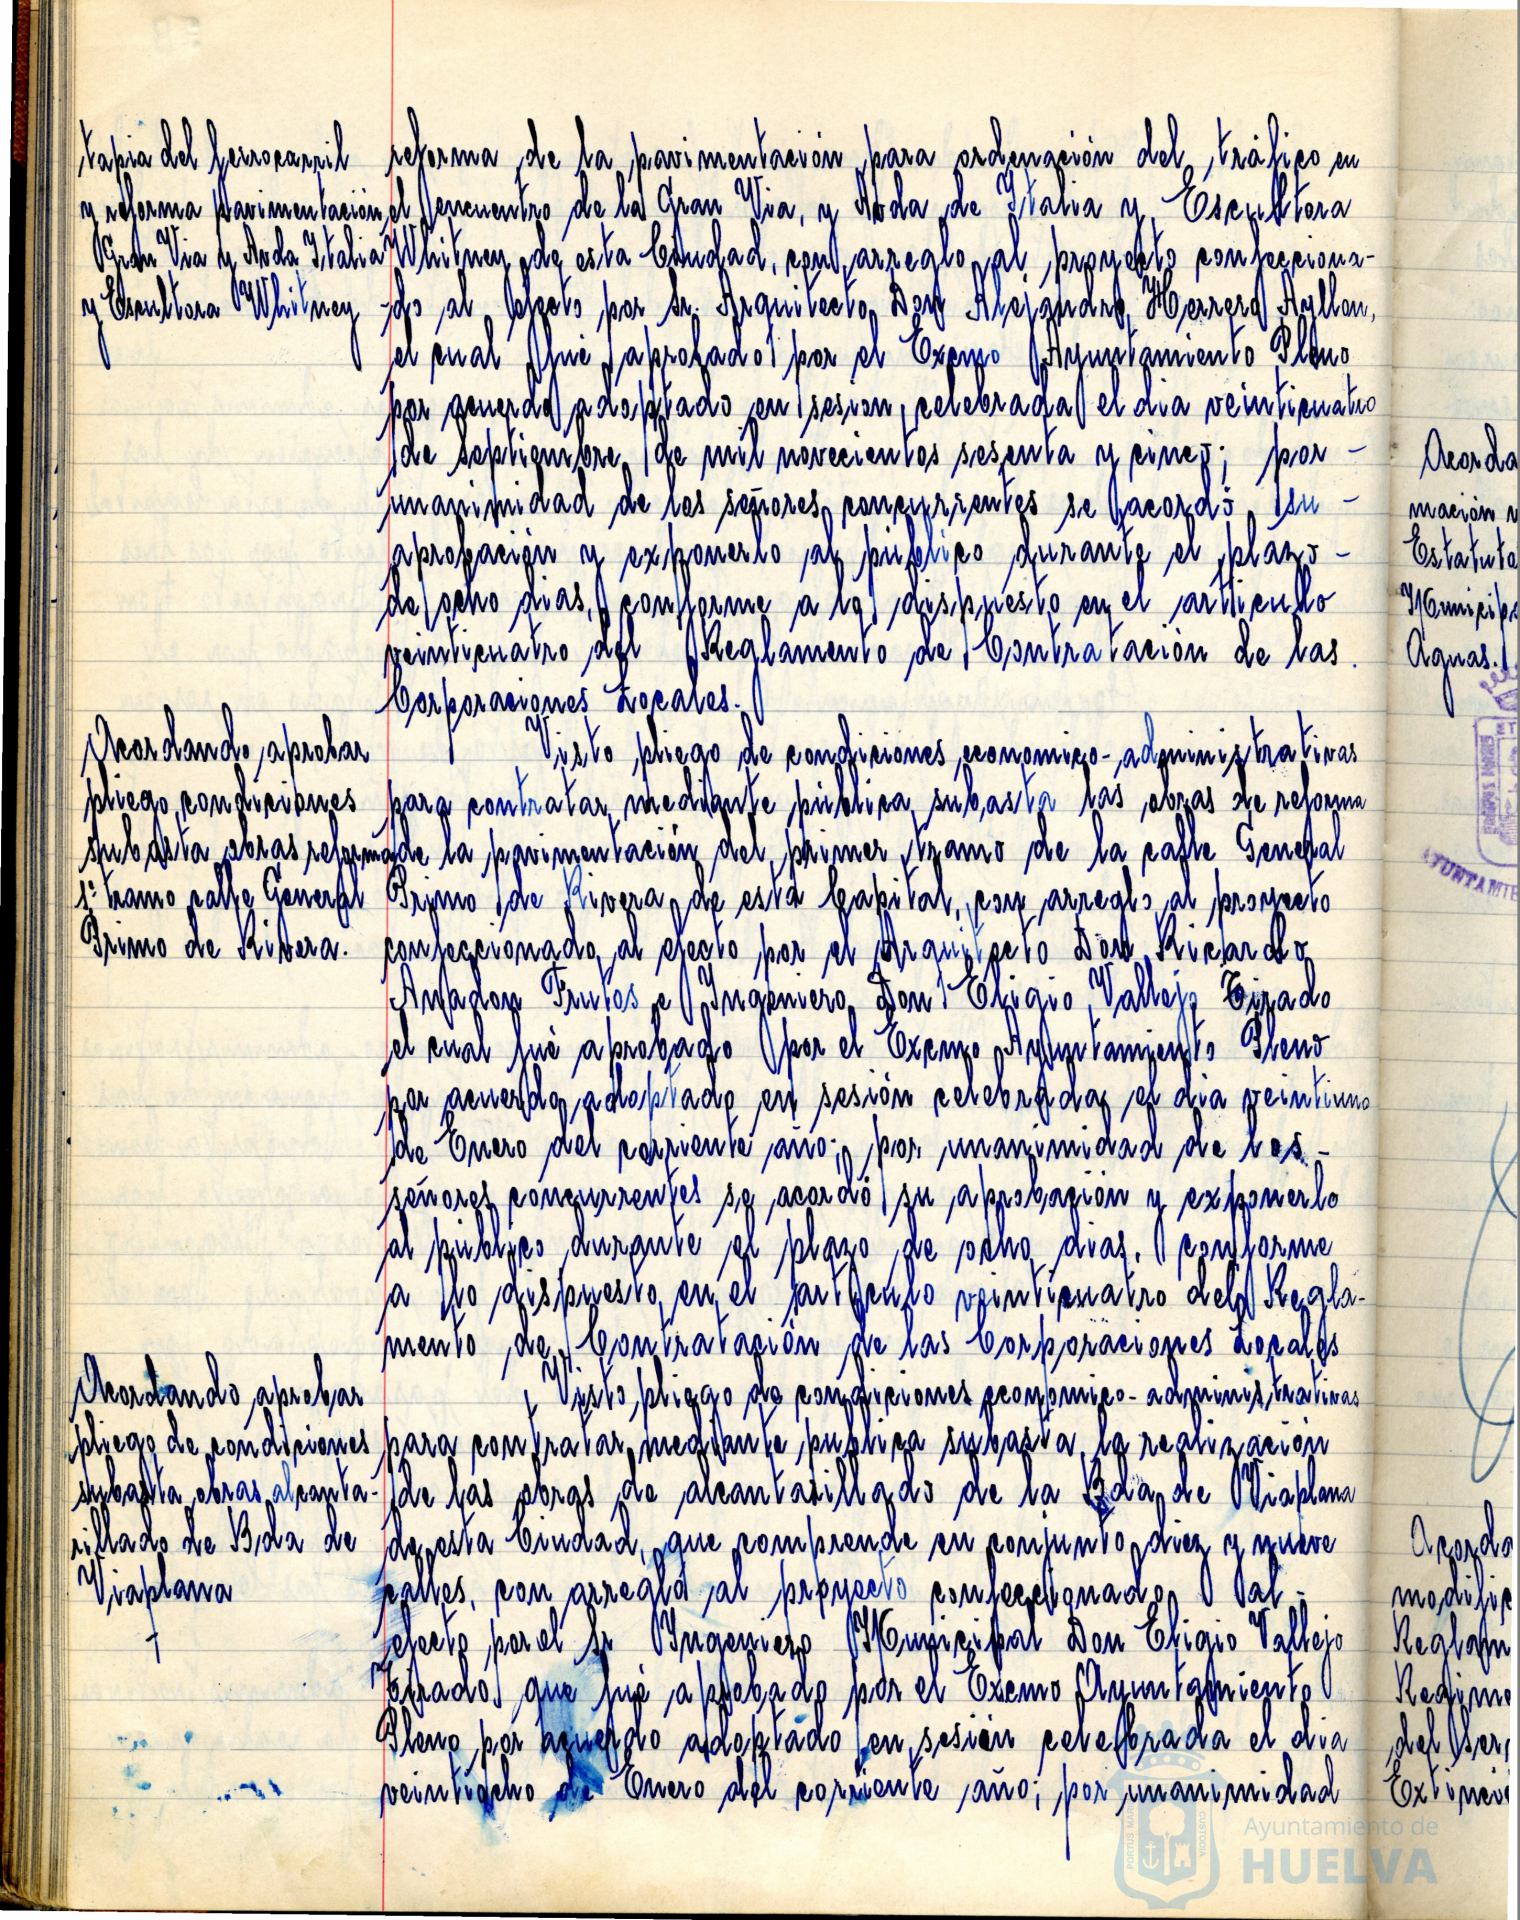 tapia del ferrocarril
y reforma pavimentación
Gran Via y Avda Italia
y Escultora Whitney
reforma de la pavimentación para ordenación del tráfico en
el encuentro de la Gran Via, y Avda de Italia y Escultora
Whitney de esta Ciudad, con arreglo al proyecto confecciona-
do al efecto por sr. Arquitecto Don Alejandro Herrero Ayllon,
el cual fué aprobado por el Excmo Ayuntamiento Pleno
por acuerdo adoptado en sesion celebrada el dia veinticuatro
de Septiembre de mil novecientos sesenta y cinco; por -
unanimidad de los señores concurrentes se acordó su -
aprobación y exponerlo al público durante el plazo -
de ocho dias, conforme a lo dispuesto en el articulo
veinticuatro del Reglamento de Contratación de las
Corporaciones Locales.
Acordando aprobar
pliego condiciones
subasta obras reforma
1º tramo calle General
Primo de Rivera.
Visto pliego de condiciones economico-administrativas
para contratar mediante pública subasta las obras de reforma
de la pavimentación del primer tramo de la calle General
Primo de Rivera de esta Capital, con arreglo al proyecto
confeccionado al efecto por el Arquitecto Don Ricardo
Anadon Frutos e Ingeniero Don Eligio Vallejo Tirado
el cual fué aprobado por el Excmo Ayuntamiento Pleno
por acuerdo adoptado en sesión celebrada el dia veintiuno
de Enero del corriente año; por unanimidad de los -
señores concurrentes se acordó su aprobación y exponerlo
al público durante el plazo de ocho dias, conforme
a lo dispuesto en el articulo veinticuatro del Regla-
mento de Contratación de las Corporaciones Locales
Acordando aprobar
pliego de condiciones
subasta obras alcanta-
rillado de B,da de
Viaplana
Visto pliego de condiciones economico-administrativas
para contratar mediante publica subasta la realización
de las obras de alcantarillado de la Bda de Viaplana
de esta Ciudad, que comprende en conjunto diez y nueve
calles, con arreglo al proyecto confeccionado al -
efecto por el sr Ingeniero Municipal Don Eligio Vallejo
Tirado que fué aprobado por el Excmo Ayuntamiento
Pleno por acuerdo adoptado en sesión celebrada el dia
veintiocho de Enero del corriente año; por unanimidad
Acorda
mación
Estatuto
Municip
Aguas.
AYUNTAMIE
Acorda
modific
Reglam
Regime
del Ser
Extinció
PORTUS MARIS
CUSTODIA
Ayuntamiento de
HUELVA